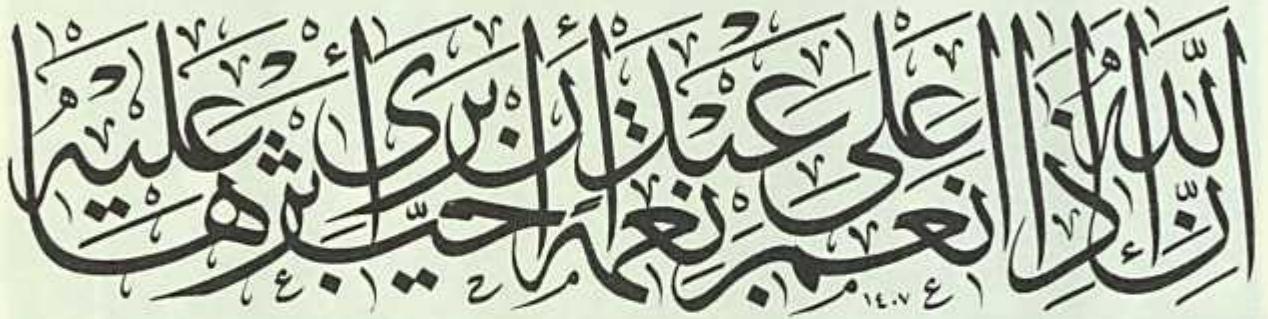 ان الله اذا انعم على عبد نعمة احب أن يرى أثرها عليه
١٤٠٧